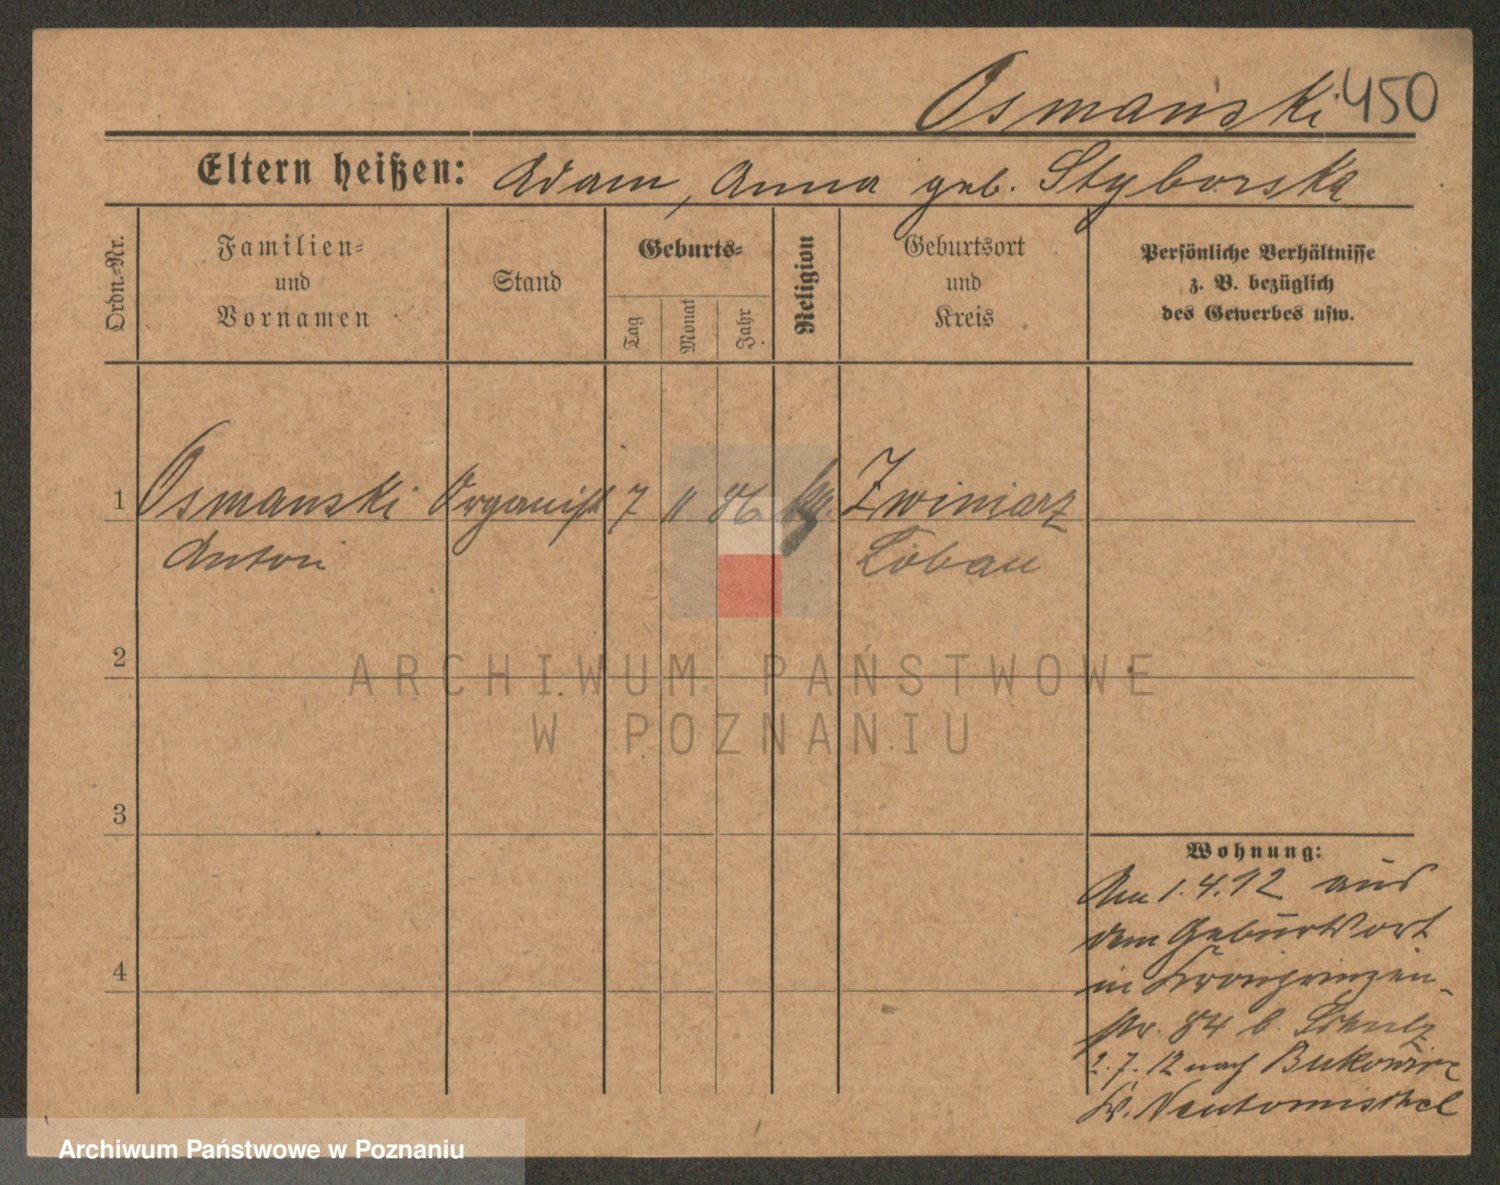 Osmanski 450
Eltern heißen: Adam, Anna geb. Styborska
Ordn.=Nr.
Familien=
und
Vornamen
Stand
Geburts=
Tag
Monat
Jahr
Religion
Geburtsort
und
Kreis
Persönliche Verhältnisse
z. B. bezüglich
des Gewerbes usw.
1 Osmanski Organist 7 11 86 Zwiniarz
Anton Löbau
2
ARCHIWUM PAŃSTWOWE
W POZNANIU
3
Wohnung:
Am 1.4.12 aus
dem Geburtsort
in Kronprinzen-
str. 84 b. Schulz
2.7.12 nach Bukowiec
Kr. Neutomischel
4
Archiwum Państwowe w Poznaniu